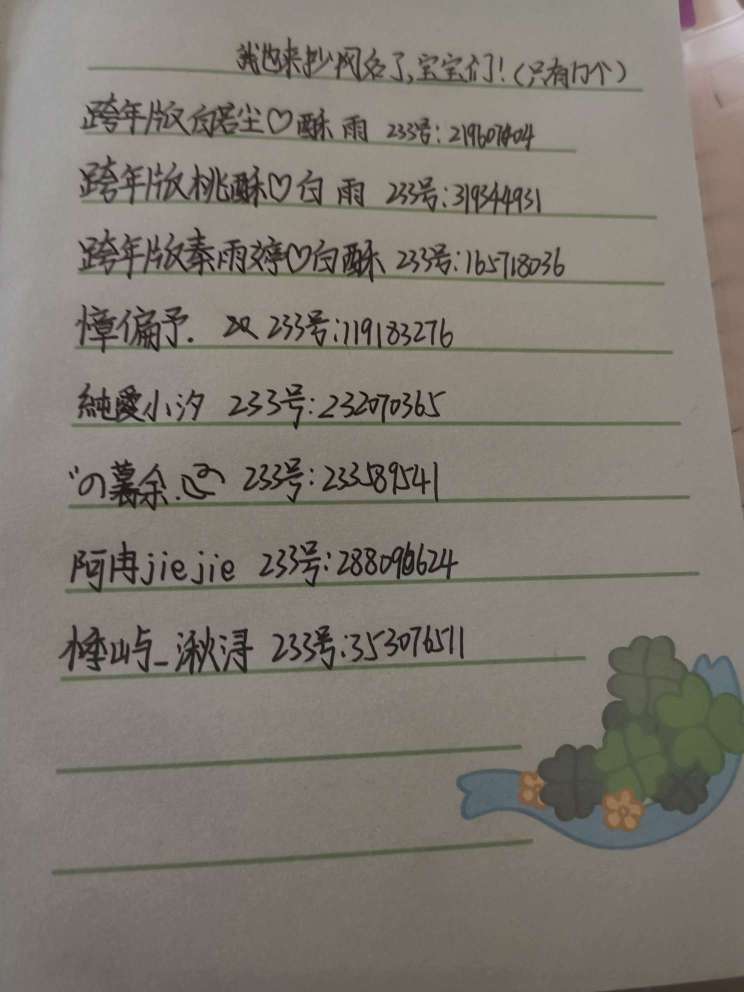 我也来抄网名了,宝宝们!(只有17个)
跨年版白若尘♡酥雨 233号:219607404
跨年版桃酥♡白雨 233号:319344931
跨年版秦雨婷♡白酥 233号:165718036
慞偏予. 233号:119183276
純愛小汐 233号:232070365
の薯余. 233号:233589541
阿冉jiejie 233号:288096624
屿_湫浔 233号:353076511